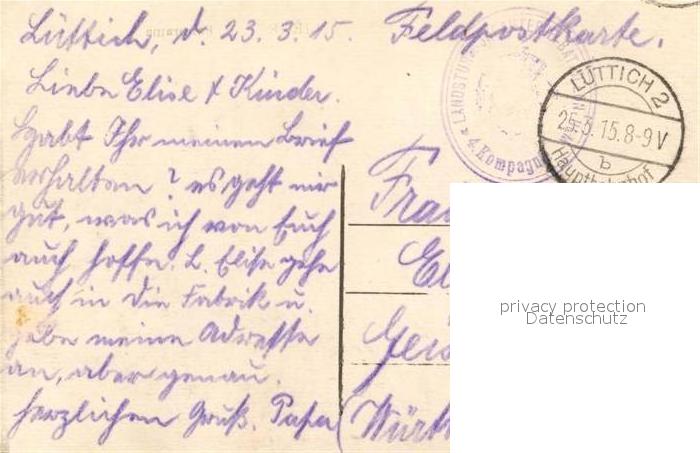 Lüttich, d. 23.3.15. Feldpostkarte.
Liebe Elise & Kinder.
Habt Ihr meinen Brief
erhalten? es geht mir
gut, was ich von Euch
auch hoffe. L. Elise gehe
auch in die Fabrik u.
gebe meine Adresse
an, aber genau.
Herzlichen Gruß. Papa
Frau
El
Geis
(Württ
LANDSTURM
4. Kompagn
LÜTTICH 2
25.3.15.8-9V
b
Hauptbahnhof
privacy protection
Datenschutz